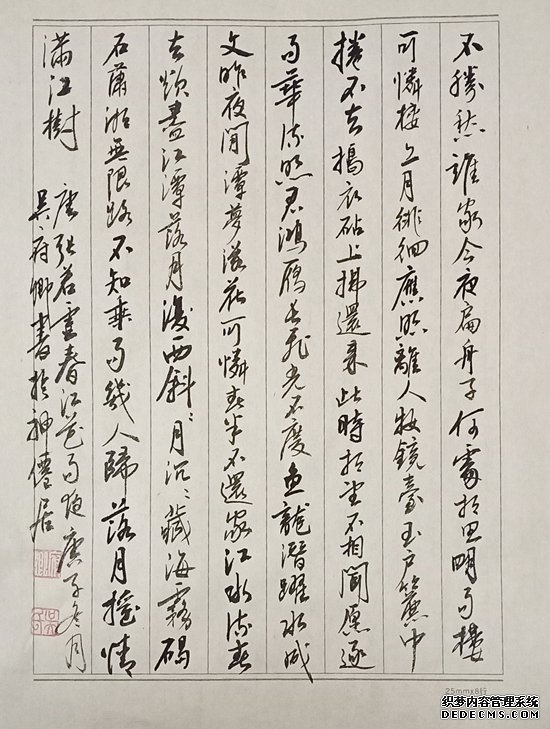 不勝愁誰家今夜扁舟子何處相思明月樓
可憐樓上月徘徊應照離人妝鏡臺玉戶簾中
捲不去搗衣砧上拂還來此時相望不相聞願逐
月華流照君鴻雁長飛光不度魚龍潛躍水成
文昨夜閒潭夢落花可憐春半不還家江水流春
去欲盡江潭落月復西斜〻月沉〻藏海霧碣
石瀟湘無限路不知乘月幾人歸落月搖情
滿江樹
唐張若虛春江花月夜庚子冬月
吳府卿書於神僊居
25mmx8行
织梦内容管理系统
DEDECMS.COM